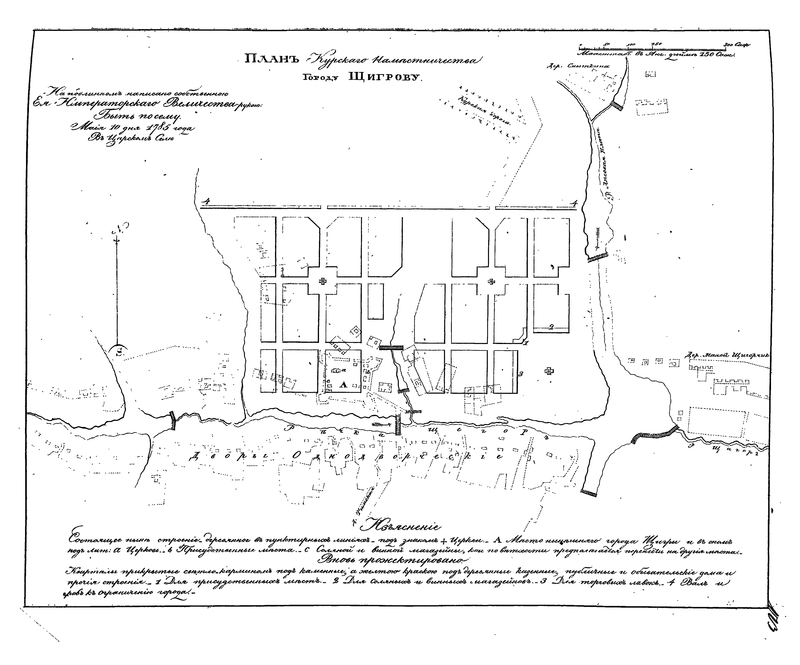 Планъ Курскаго Намѣстничества
Городу Щигрову.
На подлинномъ написано собственною
Ея Императорскаго Величества рукою:
Быть по сему.
Маiя 10 дня 1785 года
Въ Царскомъ Селѣ
Масштабъ въ Анг. дюймѣ 250 Саж.
Дер.
4
4
3
3
A
Дер. Малой Щигорчикъ
Рѣчка Щигоръ
Дворы Однодворческiе
Изъясненiе
Состоящее нынѣ строенiе деревянное въ пунктирныхъ линiяхъ подъ знакомъ + Церкви. А Мѣсто нынѣшняго города Щигры и въ ономъ
подъ лит: а Церковь. в Присудственные мѣста. с Соляной и винной магазейны, кои по ветхости предполагается перенести на другiя мѣста.
Вновь прожектировано
Кварталы прикрытые свѣтло карминомъ подъ каменные, а желтою краскою подъ деревянные казенные, публичные и обывательскiе дома и
прочiя строенiя. 1 Для присудственныхъ мѣстъ. 2 Для соляныхъ и винныхъ магазейновъ. 3 Для торговыхъ лавокъ. 4 Валъ и
ровъ къ ограниченiю города.